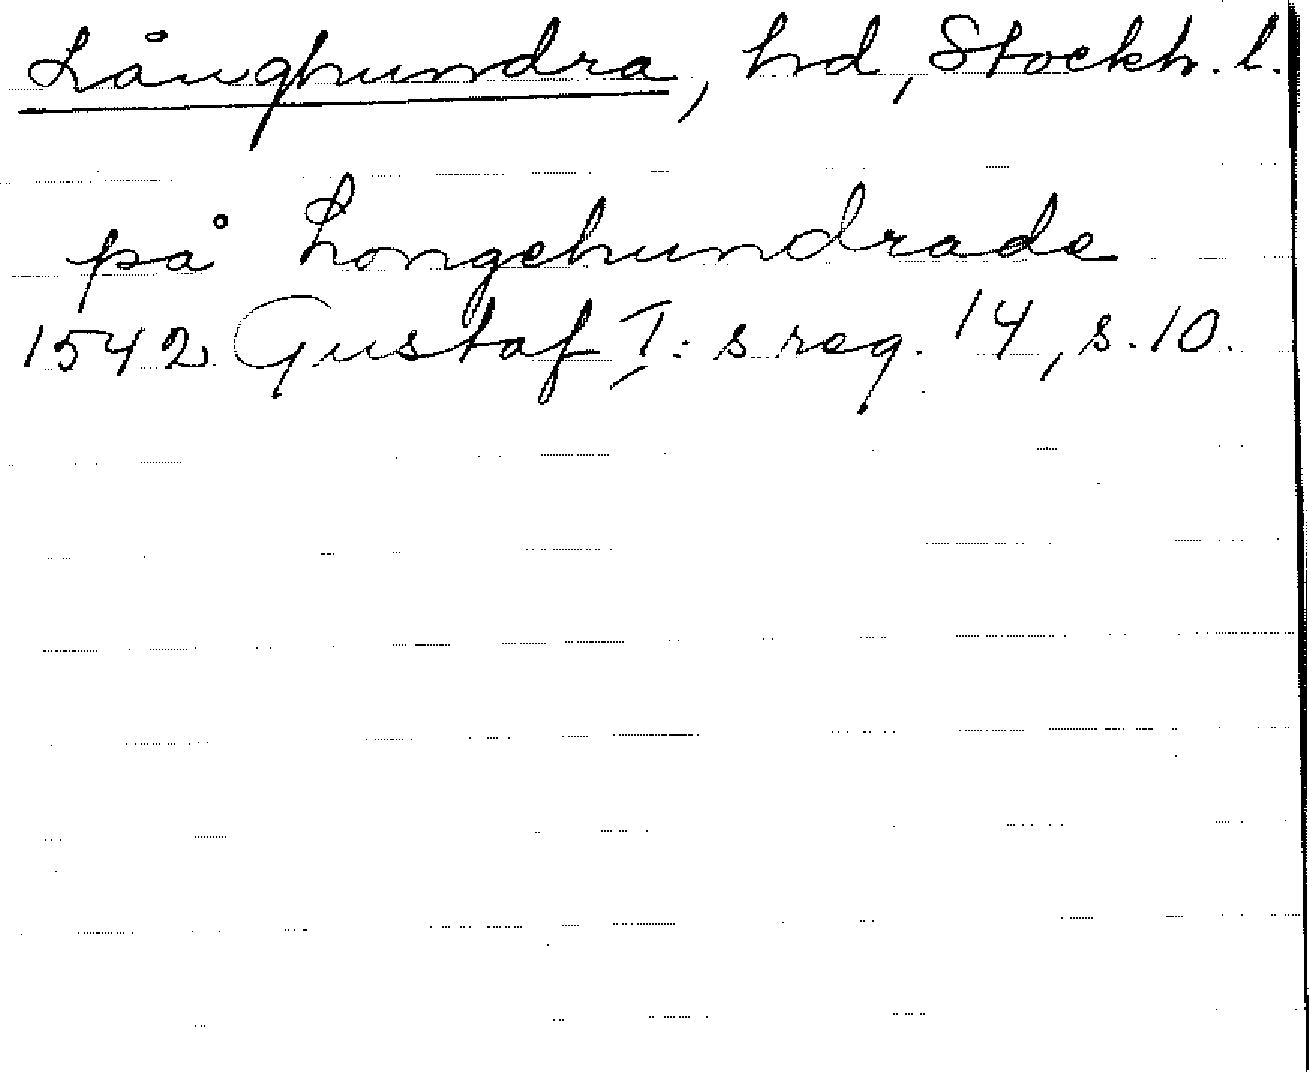 Långhundra, hd, Stockh. l.
på Longehundrade
1542 Gustaf I:s reg. 14, s. 10.